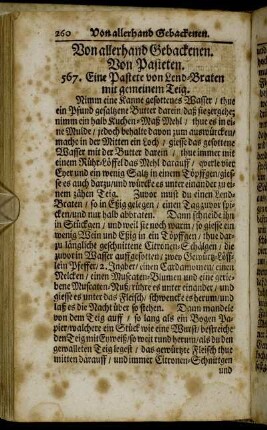 260 Von allerhand Gebackenen.
Von allerhand Gebackenen.
Von Pasteten.
567. Eine Pastete von Lend-Braten
mit gemeinem Teig.
Nimm eine Kanne gesottenes Wasser / thue
ein Pfund gesaltzene Butter darein / daß sie zergehe;
nimm ein halb Kuchen-Maß Mehl / thue es in ei-
ne Mulde / jedoch behalte davon zum auswürcken /
mache in der Mitten ein Loch / giesse das gesottene
Wasser mit der Butter darein / thue immer mit
einem Rühr-Löffel das Mehl darauff / werffe vier
Eyer und ein wenig Saltz in einem Töpffgen / gies-
se es auch darzu / und würcke es unter einander zu ei-
nem zähen Teig. Zuvor must du einen Lend-
Braten / so in Eßig gelegen / einen Tag zuvor spi-
cken / und nur halb abbraten. Dann schneide ihn
in Stückgen / und weil sie noch warm / so giesse ein
wenig Wein und Eßig in ein Töpffgen / thue dar-
zu länglicht geschnittene Citronen-Schälgen / die
zuvor in Wasser auffgesotten / zwey Gewürtz-Löff-
lein Pfeffer / 2. Ingber / einen Cardamomen / einen
Nelcken / einen Muscaten-Blumen und eine gerie-
bene Muscaten-Nuß / rühre es unter einander / und
giesse es unter das Fleisch / schwencke es herum / und
laß es die Nacht über so stehen. Dann mandele
von dem Teig auff / so lang als ein Bogen Pa-
pier / walchere ein Stück wie eine Wurst / bestreiche
den Teig mit Eyweiß / so weit rund herum / als du den
gewalleten Teig legest / das gewürtzte Fleisch thue
mitten darauff / und immer Citronen-Schnittgen
und